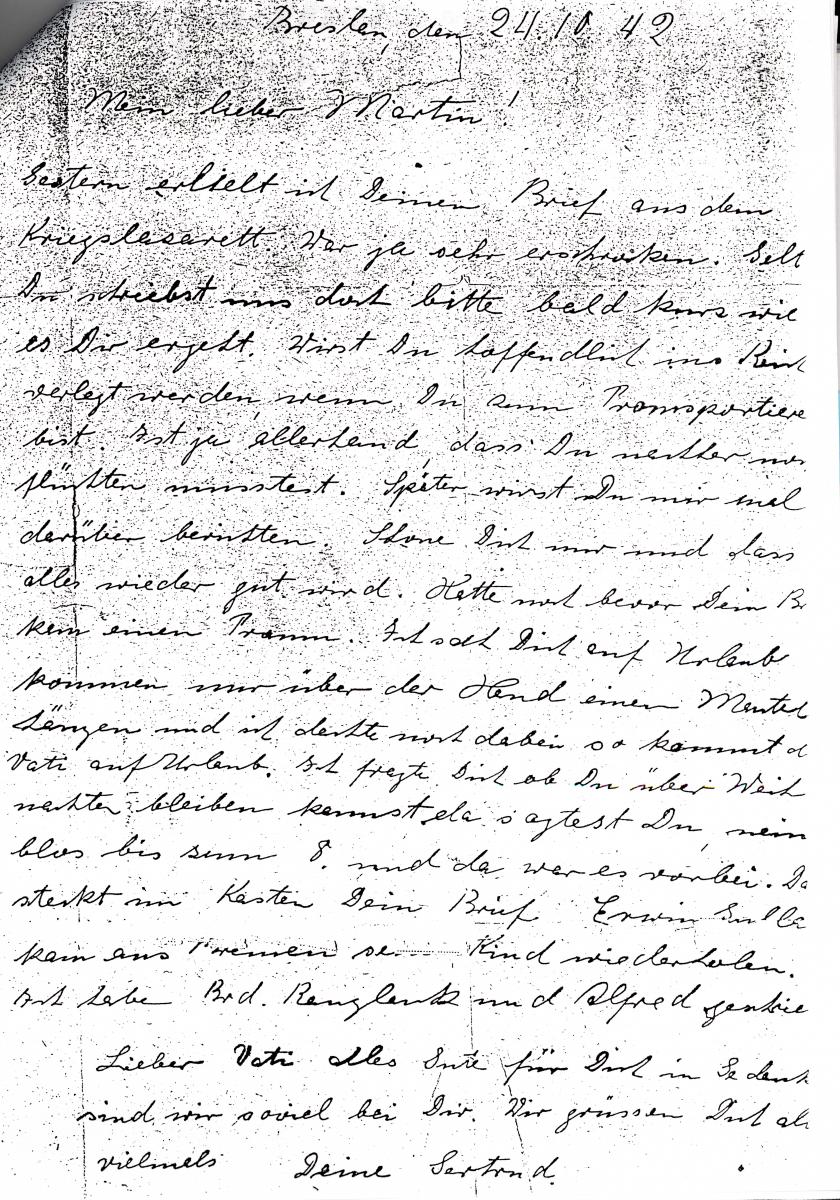 Breslau, den 24.10.42
Mein lieber Martin!
Gestern erhielt ich Deinen Brief aus dem
Kriegslazarett. War ja sehr erschrocken. Gelt
Du schriebst uns doch bitte bald kurz wie
es Dir ergeht. Wirst Du hoffendlich ins Reich
verlegt werden, wenn Du zum Transportiere
bist. Ist ja allerhand, dass Du nachher noch
flüchten musstest. Später wirst Du mir mal
darüber berichten. Schone Dich nur und dass
alles wieder gut wird. Hatte noch bevor Dein Br
kam einen Traum. Ich sah Dich auf Urlaub
kommen nur über der Hand einen Mantel
hängen und ich dachte noch dabei so kommt d
Vati auf Urlaub. Ich fragte Dich ob Du über Weih
nachten bleiben kannst, da sagtest Du, nein
blos bis zum 8. und da war es vorbei. Da
steckt im Kasten Dein Brief. Erwin
kam aus Bremen se Kind wiederholen.
Ich habe Brd. und Alfred geschrie
Lieber Vati alles Gute für Dich in Gedank
sind wir soviel bei Dir. Wir grüssen Dich al
vielmals Deine Gertrud.